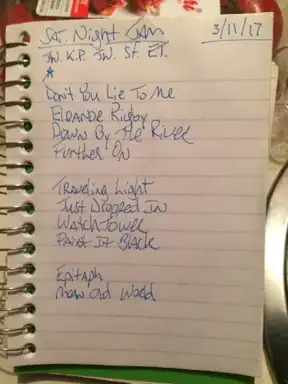 Sat. Night Jam 3/11/17
JW. K.P. JW. St. ET.
Don't You Lie To Me
Eleanor Rigby
Down By The River
Further On
Traveling Light
Just Dropped In
WatchTower
Paint It Black
Epitaph
Old World